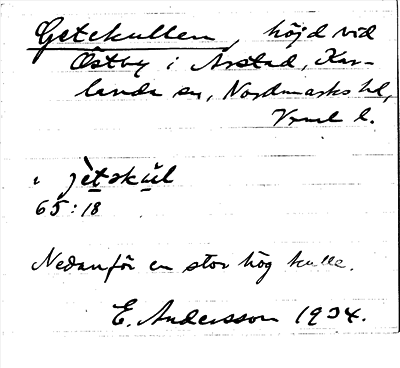 Getekullen, höjd vid
Östby i Årstad, Kar-
landa sn, Nordmarks hd,
Vrml l.
i jètəkùl
65:18
Nedanför en stor hög kulle.
E. Andersson 1934.